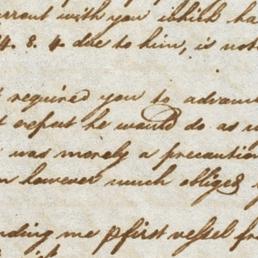 errant with you which ha
4. 8. 4. due to him, is not
required you to advanc
t expect he would do as u
was merely a precaution
however much obliged
nding me pfirst vessel fr